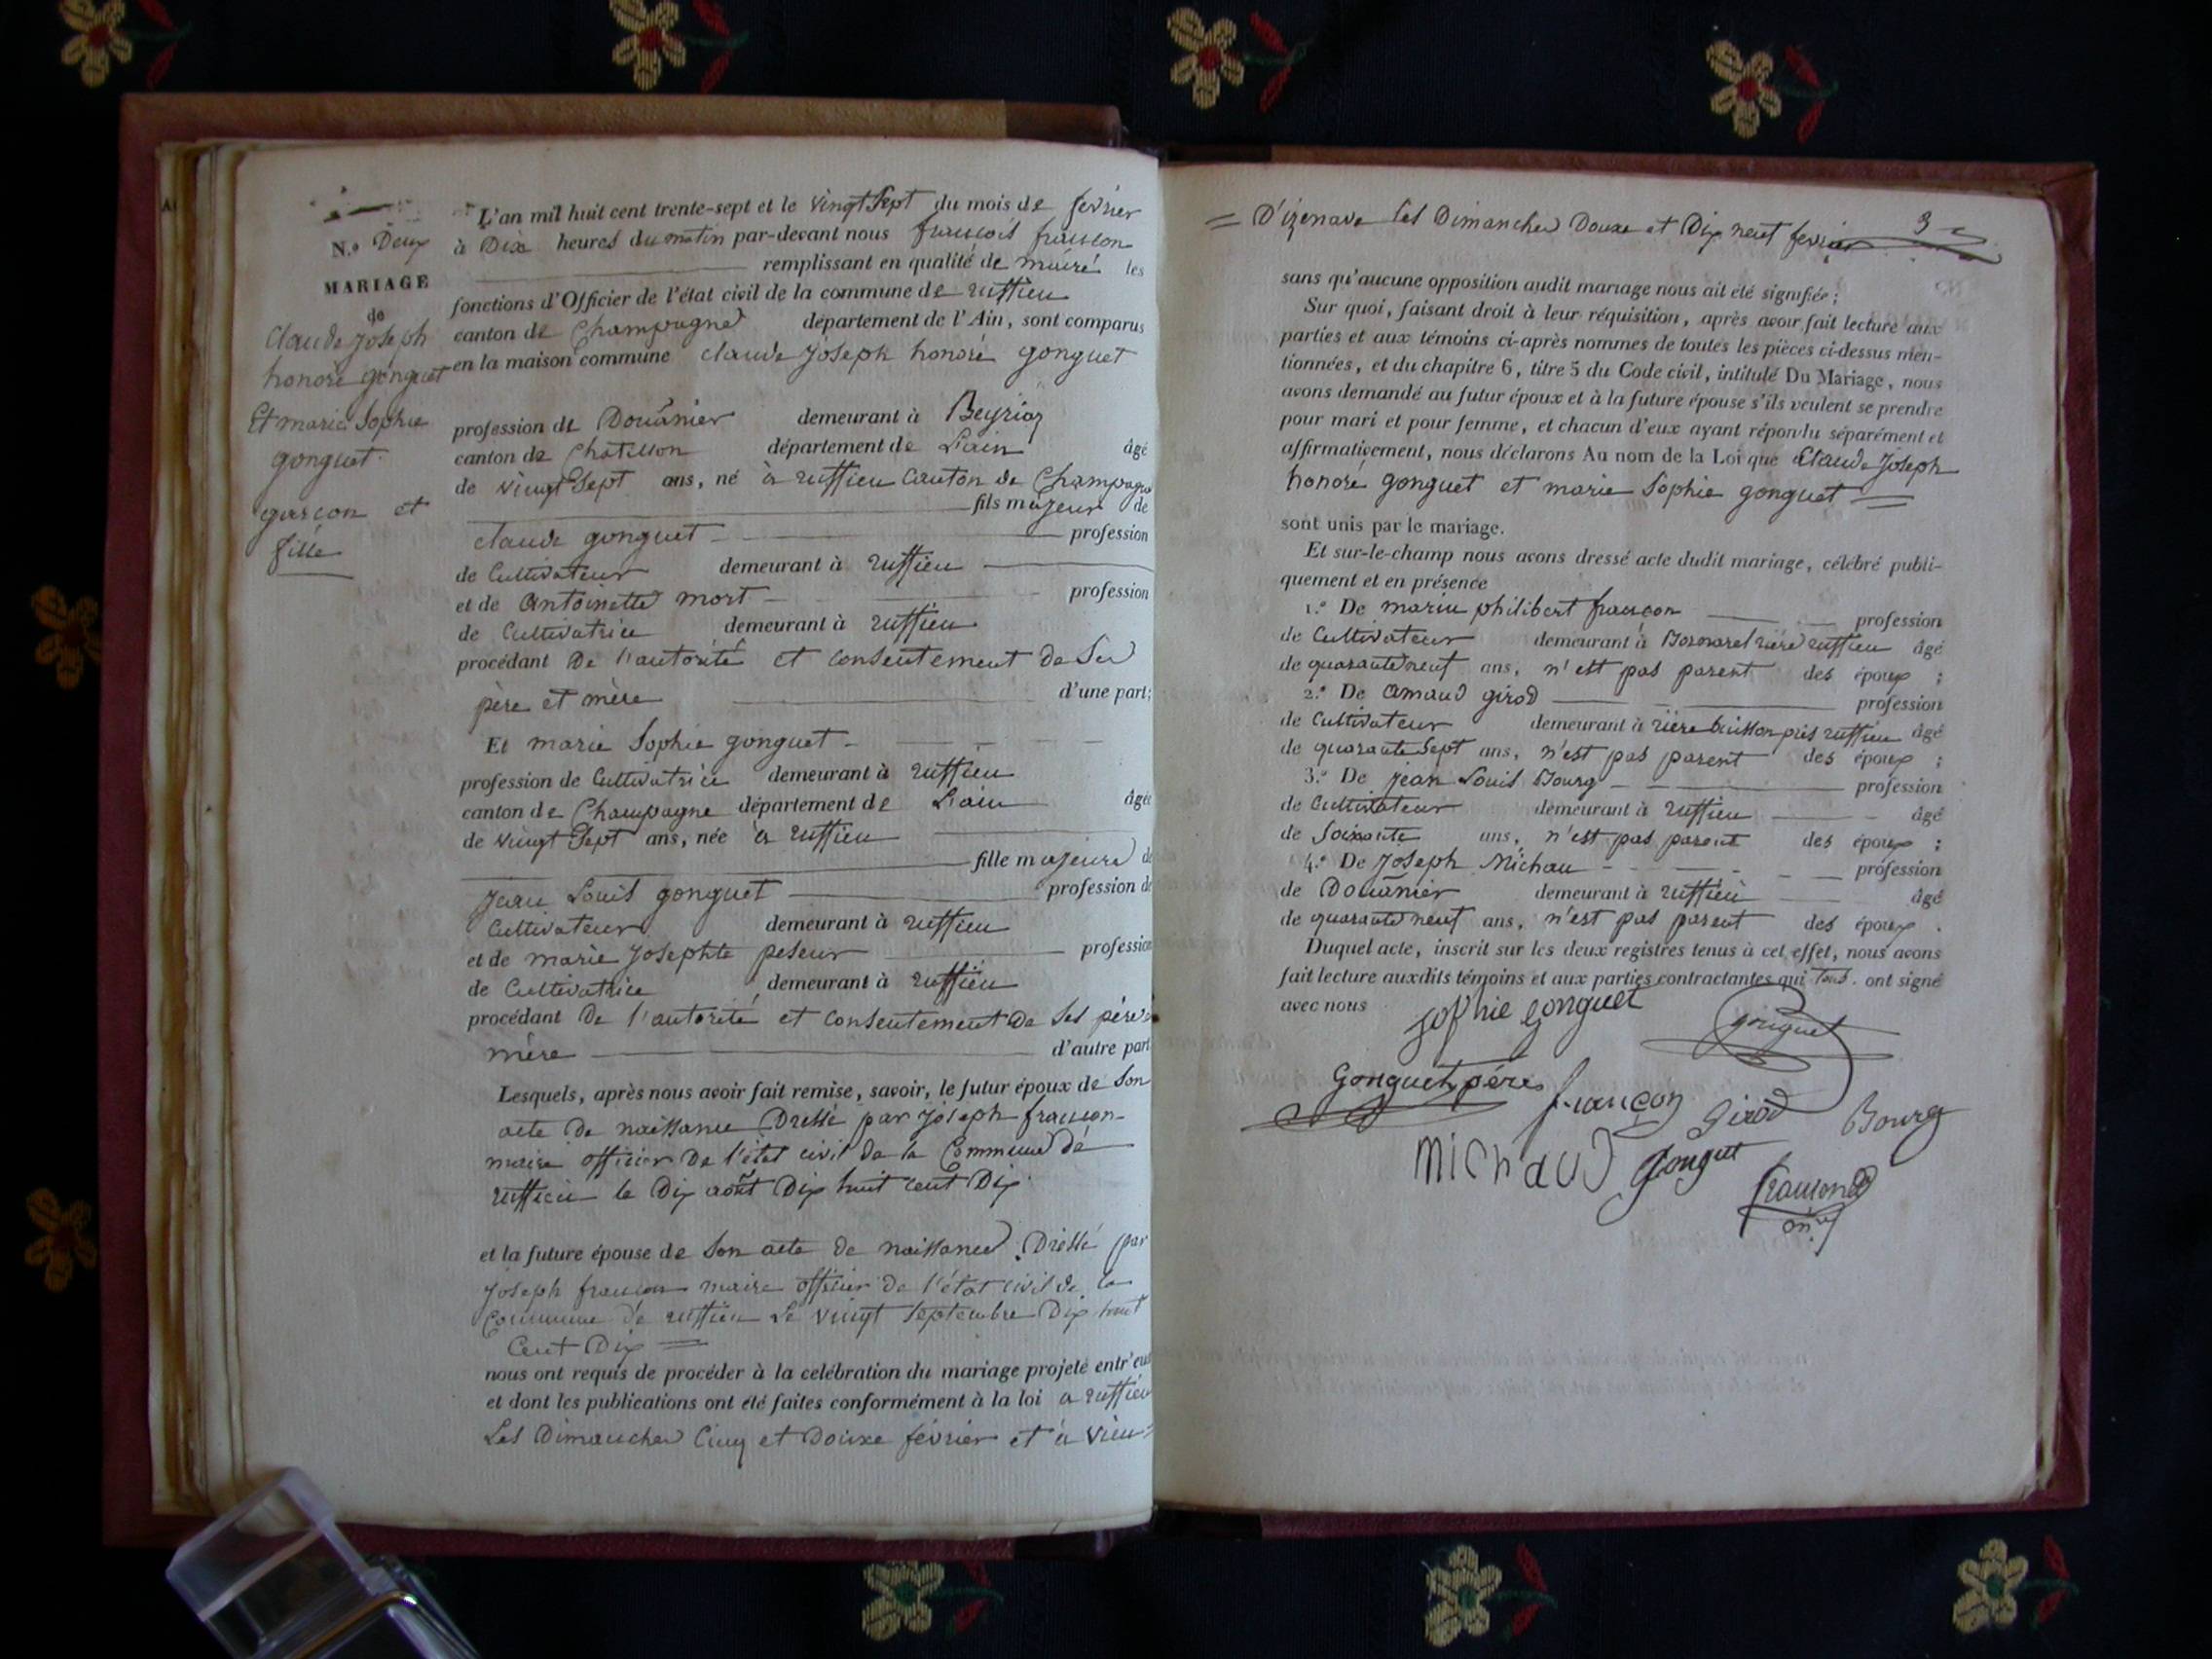 N.o Deux
MARIAGE
de
Claude Joseph
honoré gonguet
Et marie Sophie
gonguet
garçon et
fille
L'an mil huit cent trente-sept et le vingt Sept du mois de fevrier
à Dix heures du matin par-devant nous françois françon
remplissant en qualité de maire les
fonctions d'Officier de l'état civil de la commune de ruffieu
canton de Champagne département de l'Ain, sont comparus
en la maison commune claude Joseph honoré gonguet
profession de Douânier demeurant à Beyriaz
canton de Chatillon département de L'ain âgé
de vingt Sept ans, né à ruffieu Canton de Champagne
fils majeur de
claude gonguet profession
de Cultivateur demeurant à ruffieu
et de Antoinette mort profession
de Cultivatrice demeurant à ruffieu
procédant De l'autorité et Consentement de Ses
père et mère d'une part;
Et marie Sophie gonguet
profession de Cultivatrice demeurant à ruffieu
canton de Champagne département de L'ain âgée
de vingt Sept ans, née à ruffieu
fille majeure de
Jean Louis gonguet profession de
Cultivateur demeurant à ruffieu
et de marie Josephte peseur profession
de Cultivatrice demeurant à ruffieu
procédant De l'autorité et Consentement De Ses père et
mère d'autre part
Lesquels, après nous avoir fait remise, savoir, le futur époux de Son
acte de naissance Dressé par Joseph françon
maire officier De l'état civil de la Commune de
ruffieu le Dix août Dix huit cent Dix
et la future épouse de Son acte de naissance Dressé par
Joseph françon maire officier de l'état civil de la
Commune de ruffieu Le vingt Septembre Dix huit
Cent Dix
nous ont requis de procéder à la celébration du mariage projeté entr'eux
et dont les publications ont été faites conformément à la loi a ruffieu
Les Dimanches Cinq et Douxe février et à vieu =
= D'izenave les Dimanches Douxe et Dix neuf fevrier 3
sans qu'aucune opposition audit mariage nous ait été signifiée;
Sur quoi, faisant droit à leur réquisition, après avoir fait lecture aux
parties et aux témoins ci-après nommes de toutes les pièces ci-dessus men-
tionnées, et du chapitre 6, titre 5 du Code civil, intitulé Du Mariage, nous
avons demandé au futur époux et à la future épouse s'ils veulent se prendre
pour mari et pour femme, et chacun d'eux ayant répondu séparément et
affirmativement, nous déclarons Au nom de la Loi que Claude Joseph
honoré gonguet et marie Sophie gonguet
sont unis par le mariage.
Et sur-le-champ nous avons dressé acte dudit mariage, célébré publi-
quement et en présence
1.o De marin philibert françon profession
de Cultivateur demeurant à rière ruffieu âgé
de quarante neuf ans, n'est pas parent des époux;
2.o De Amand girod profession
de Cultivateur demeurant à rière buisson près ruffieu âgé
de quarante Sept ans, n'est pas parent des époux;
3.o De jean Louis Bourg profession
de Cultivateur demeurant à ruffieu âgé
de Soixante ans, n'est pas parent des époux;
4.o De Joseph Michau profession
de Douânier demeurant à ruffieu âgé
de quarante neuf ans, n'est pas parent des époux.
Duquel acte, inscrit sur les deux registres tenus à cet effet, nous avons
fait lecture auxdits témoins et aux parties contractantes qui Tous ont signé
avec nous Sophie gonguet gonguet
Gonguet père françon Girod Bourg
Michaud gonguet françon